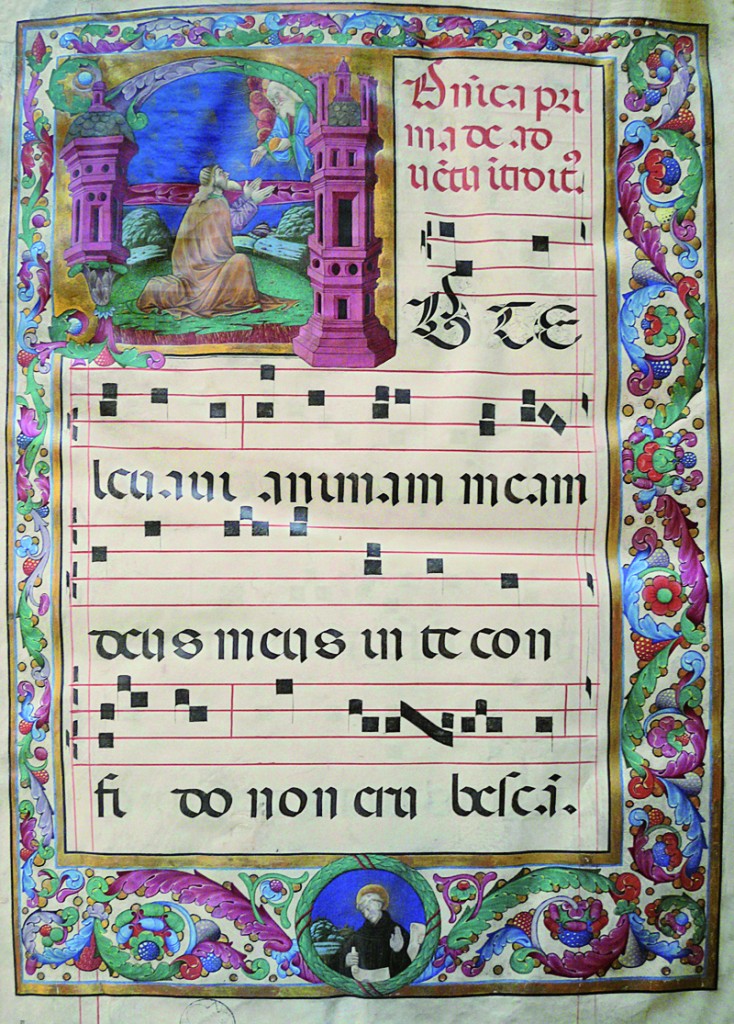 Dñica pri
ma de ad
uētu ītroitꝰ.
AD TE
leuaui animam meam
deus meus in te con
fi do non eru beſcā.